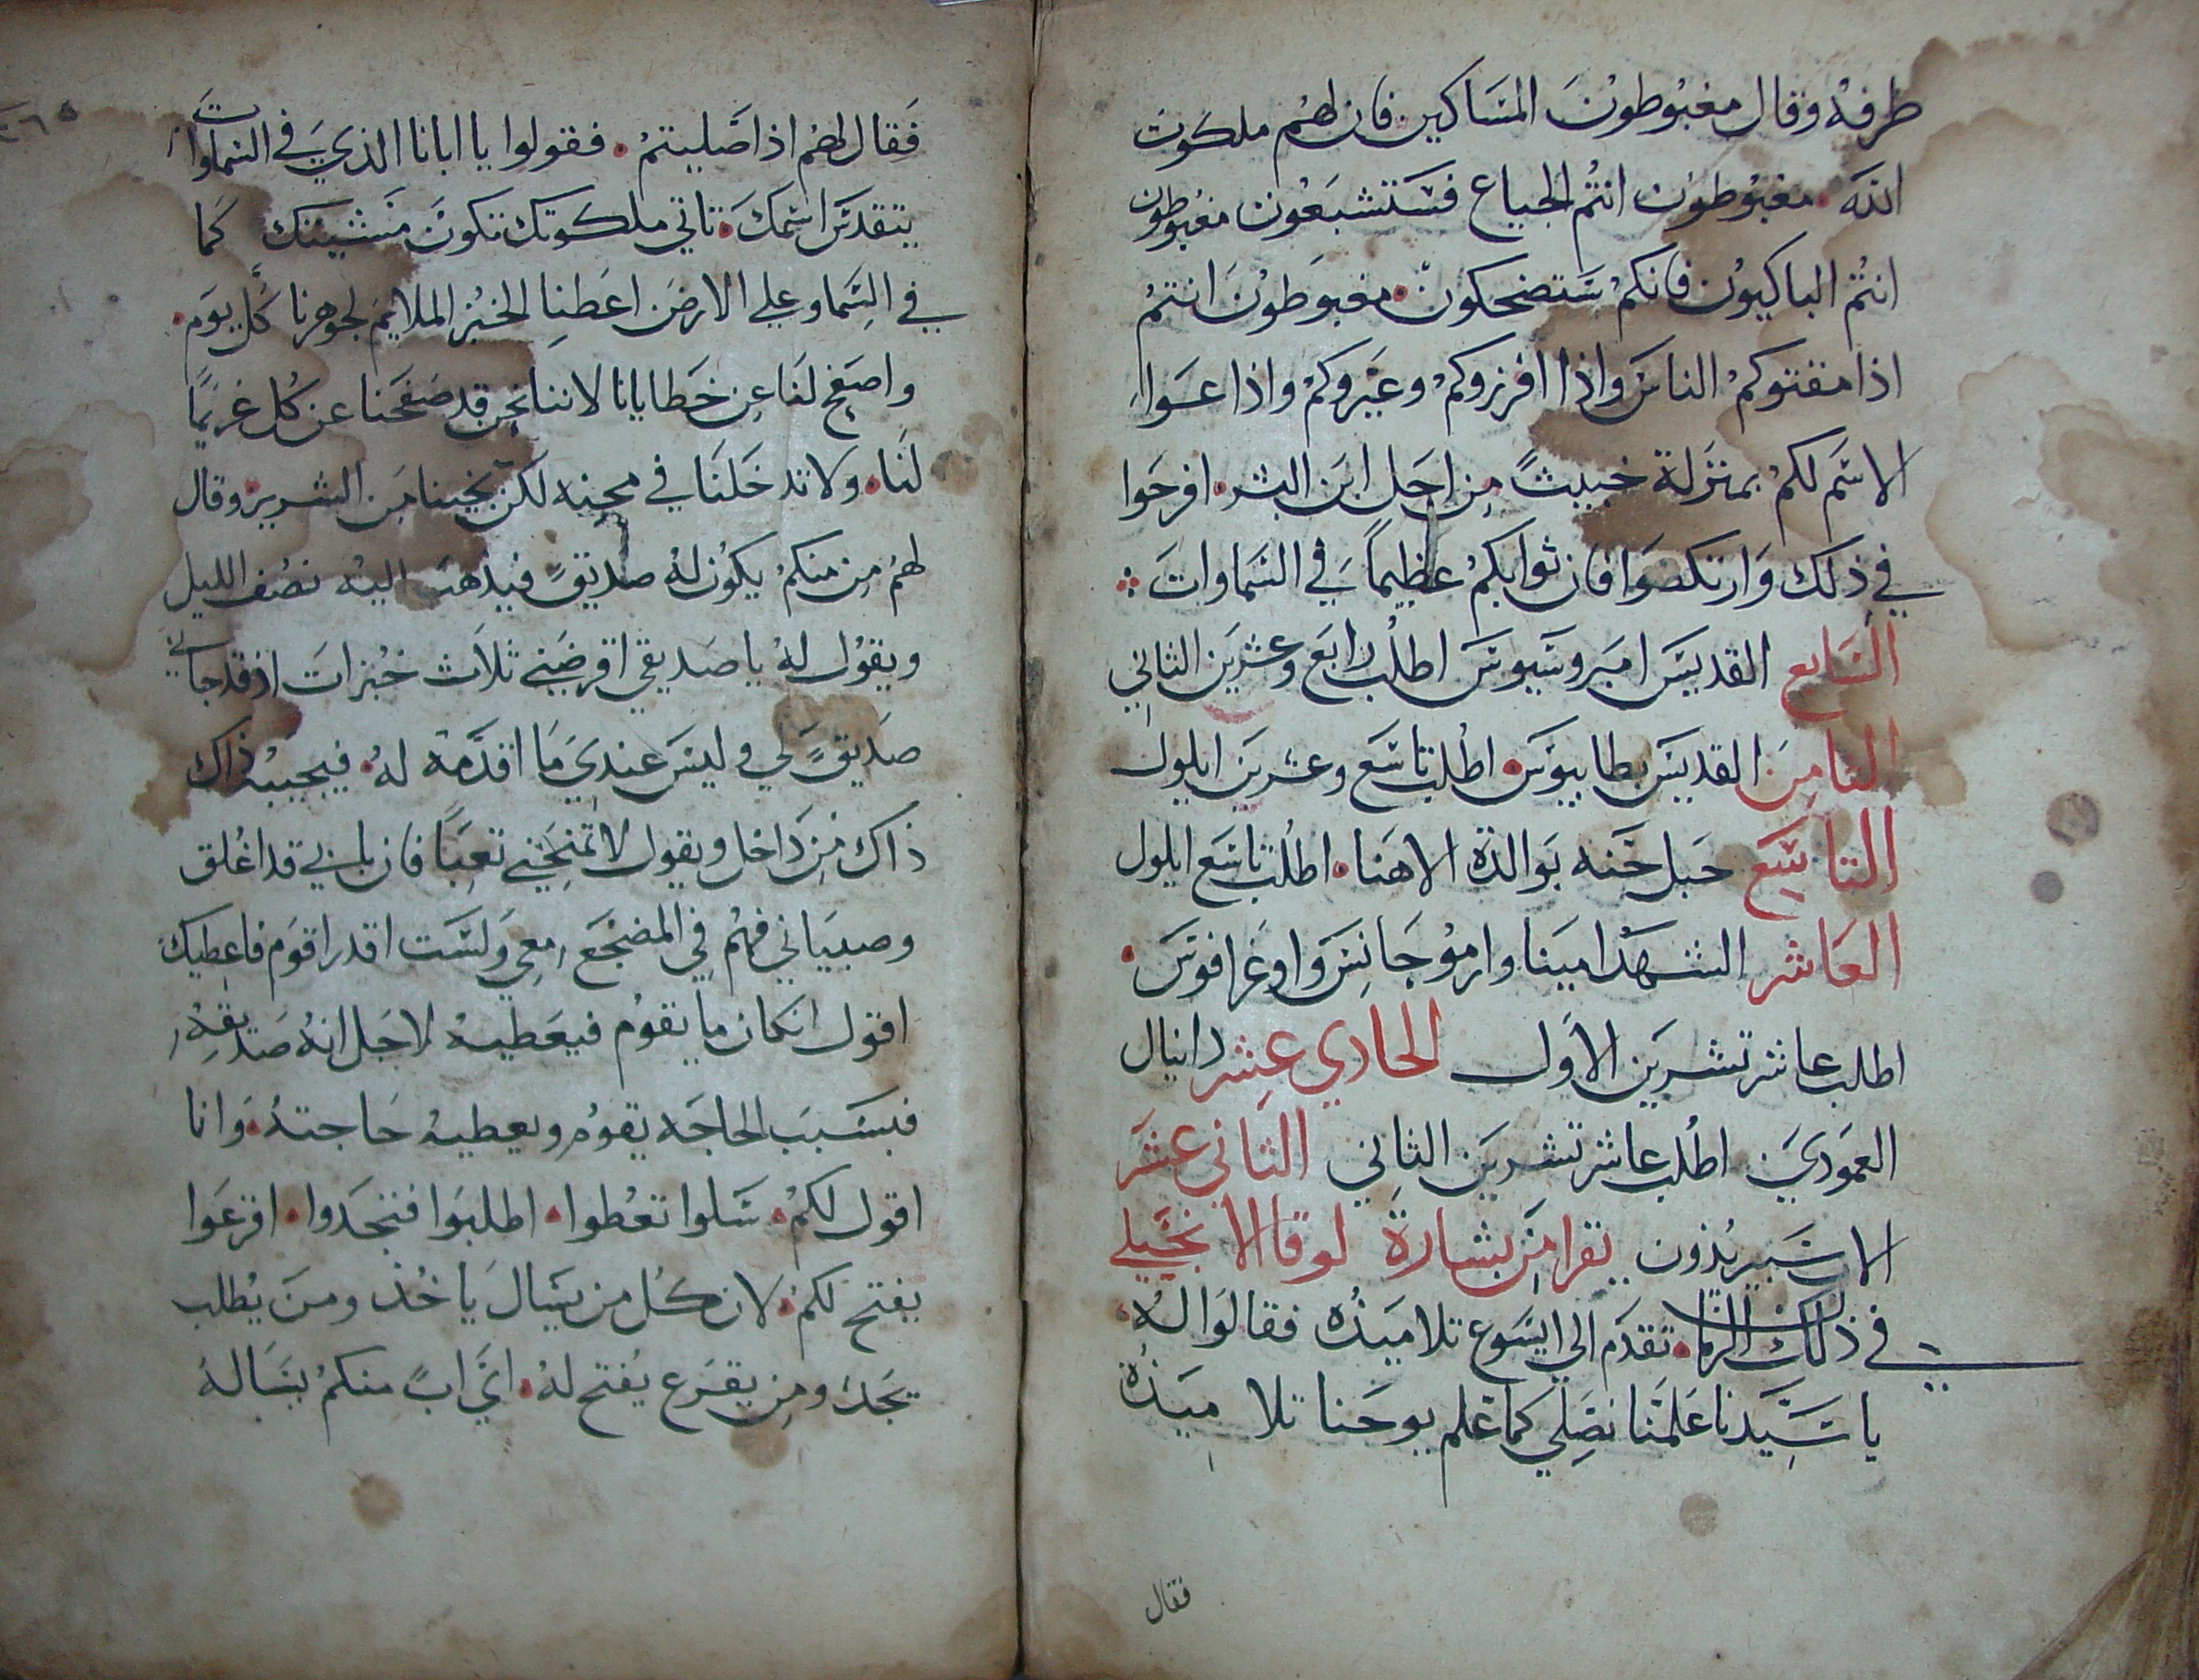 طرفهُ وقال مغبُوطوُنَ المسَاكين فان لهُم ملكوتَ
اللهَ مغبُوطوُن انتُم الجياع فسَتشبَعُون مغبُوطون
انتُم الباكيوُن فانكمُ سَتضحكونَ مغبوَطوُنَ انتمُ
اذا مقتوكمُ الناسَ واذا افرزوكمُ وعَيّروكمُ واذا عَوا
الاسَم لكمُ بمنزَلة خبيثً مِن اجَل ابَن البشر افرحَوا
في ذلك وَارتكضوَا فان ثوابكمُ عظيماً في السَماوات
السَابع القديسَ امبروسَيوسَ اطلُب رابعَ وعشريَن الثاني
الثامِنَ القديسَ بطابيوسَ اطلُب تاسَع وعشرين ايلول
التاسَِع حَبل حَنه بوَالدة الاهنَا اطلُب تاسَع ايلول
العَاشر الشهدَا مينا وارموُجَانِسَ وَاوغرافوسَ
اطلب عاشر تشريَن الاوَل الحادي عِشر دانيال
العموَديَ اطلُب عاشر تشريَن الثاني الثاني عشَر
الاسَبيريذون يقرا مِن بشارة لوقا الانجَيلي
في ذلك الزمان تقدَم الي ايسَوع تلاميَذُه فقالوَا لهُ
يا سَيَّدنا عَلمنَا نصَِلي كما عَلم يوحَنا تلاميَذُهُ
فقال
٤٦٥
فَقال لهمُ اذا صَليتمُ فقولوا يا ابانا الذيَ في السَماوات
يتقدسَ اسَمكَ تاتي ملكوتك تكونَ مشَيتك كما
في السَما وعلي الارضَ اعَطنِا الخبُز الملايمَ لجوهرنا كُل يوَم
واصفَح لنَا عِن خَطايانا لاننا نحن قد صَفحَنا عن كُل غريمًا
لنَا ولا تدخَلنَا في محنِه لكن نجينا مَن الشرير وقال
لهمُ مِن منكمُ يكوُن لهُ صديَقً فيذهبَ اليهُ نصُف الليل
ويقوُل لهُ يا صَديقي اقرضَني ثلاَث خبُزاتَ اذ قد جاني
صَديقً لي وليسَ عندَيَ مَا اقدَّمهُ لهُ فيجيبهُ ذاك
ذاك مَن دَاخل ويقول لا تمنحَني تعَباً فان بابي قد اغُلق
وصبيَاني فهُم في المضجَع معي وَلسَت اقدر اقوَم فاعطيك
اقول انكان ما يقوُم فيعَطيهُ لاجَل انهُ صَديقهُ
فبسَبَب الحاجَه يقومُ ويعطيهُ حَاجتهُ وَانا
اقول لكمُ سَلوا تعُطوا اطلبوَا فتجَدوا اقرعَوا
يفتح لكمُ لان كُل من يسَال يَاخُذ ومنَ يُطلب
يَجد ومِن يقرَع يُفتح لهُ ايَ ابً منكمُ يسَالهُ